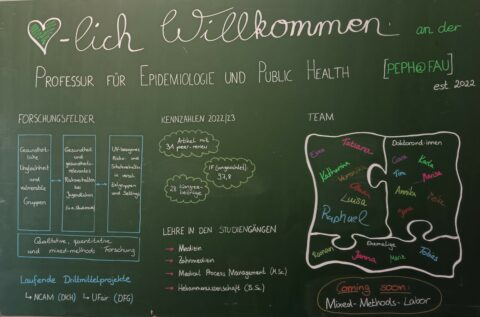 -lich Willkommen an der
Professur für Epidemiologie und Public Health [PEPH@FAU]
est 2022
Forschungsfelder
Gesundheit-
liche
Ungleichheit
und
vulnerable
Gruppen
Gesundheit
und
gesundheits-
relevantes
Risikoverhalten
bei
Jugendlichen
UV-bezogenes
Risiko- und
Schutzverhalten
in versch.
Zielgruppen und
Settings
Qualitative, quantitative
und
mixed-methods Forschung
Laufende Drittmittelprojekte
↳ NCAM (DKH) ↳ UFair (DFG)
Kennzahlen 2022/23
Artikel mit
peer-review
IF (ungewichtet)
93,8
28 Kongress-
beiträge
Lehre in den Studiengängen
→ Medizin
→ Zahnmedizin
→ Medical Process Management (M.Sc.)
→ Hebammenwissenschaft (B.Sc.)
Team
Tatiana
Katharina
Veronika
Luisa
Raphael
Doktorand:innen
Karla
Tim
Marisa
Annika
Ehemalige
Roman
Janna
Marie
Tobias
Coming soon:
Mixed-Methods-Labor